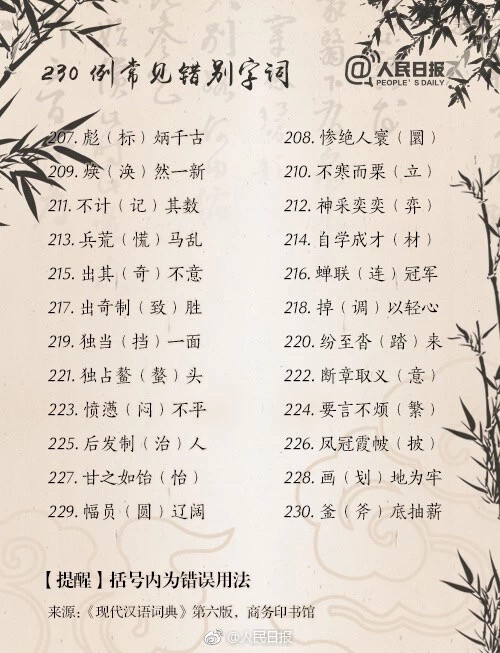 230 例常见错别字词
@人民日报
PEOPLE'S DAILY
207. 彪（标）炳千古
208. 惨绝人寰（圜）
209. 焕（涣）然一新
210. 不寒而栗（立）
211. 不计（记）其数
212. 神采奕奕（弈）
213. 兵荒（慌）马乱
214. 自学成才（材）
215. 出其（奇）不意
216. 蝉联（连）冠军
217. 出奇制（致）胜
218. 掉（调）以轻心
219. 独当（挡）一面
220. 纷至沓（踏）来
221. 独占鳌（螯）头
222. 断章取义（意）
223. 愤懑（闷）不平
224. 要言不烦（繁）
225. 后发制（治）人
226. 凤冠霞帔（披）
227. 甘之如饴（怡）
228. 画（划）地为牢
229. 幅员（圆）辽阔
230. 釜（斧）底抽薪
【提醒】括号内为错误用法
来源：《现代汉语词典》第六版，商务印书馆
@人民日报